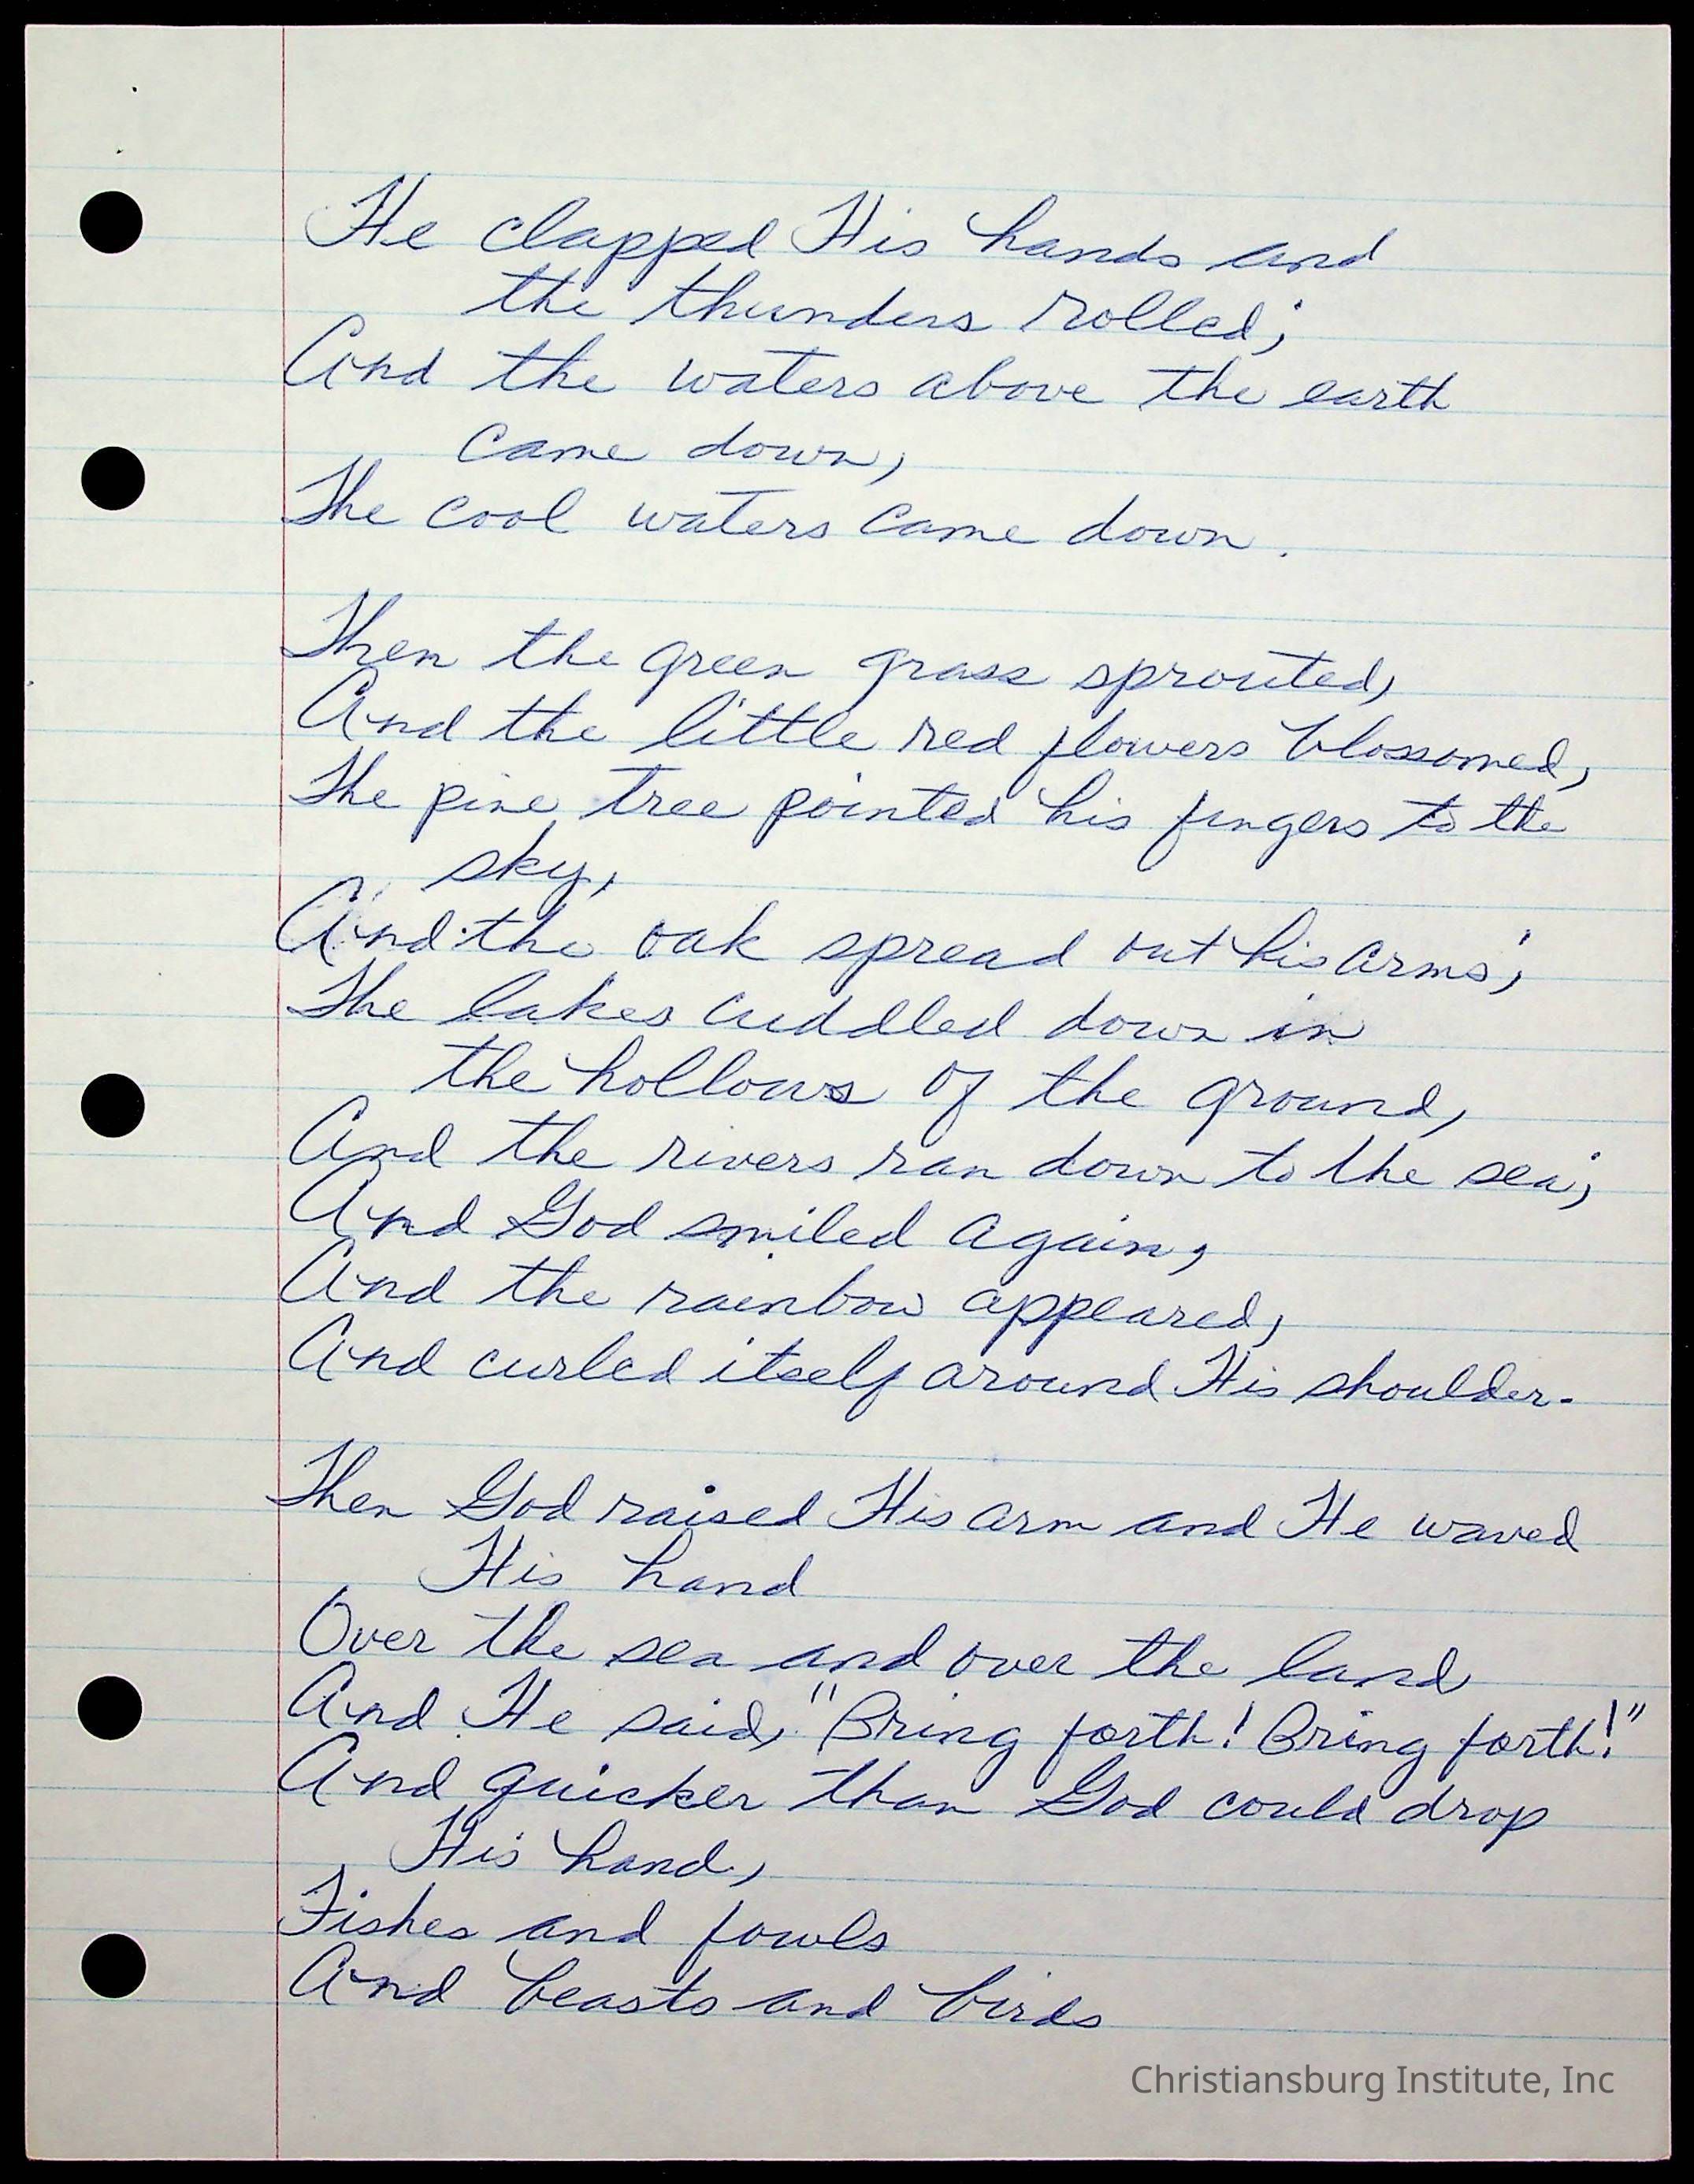 He clapped His hands and
the thunders rolled;
And the waters above the earth
came down,
The cool waters came down.
Then the green grass sprouted,
And the little red flowers blossomed,
The pine tree pointed his fingers to the
sky,
And the oak spread out his arms;
The lakes cuddled down in
the hollows of the ground,
And the rivers ran down to the sea;
And God smiled again,
And the rainbow appeared,
And curled itself around His shoulder.
Then God raised His arm and He waved
His hand
Over the sea and over the land
And He said, "Bring forth! Bring forth!"
And quicker than God could drop
His hand,
Fishes and fowls
And beasts and birds
Christiansburg Institute, Inc